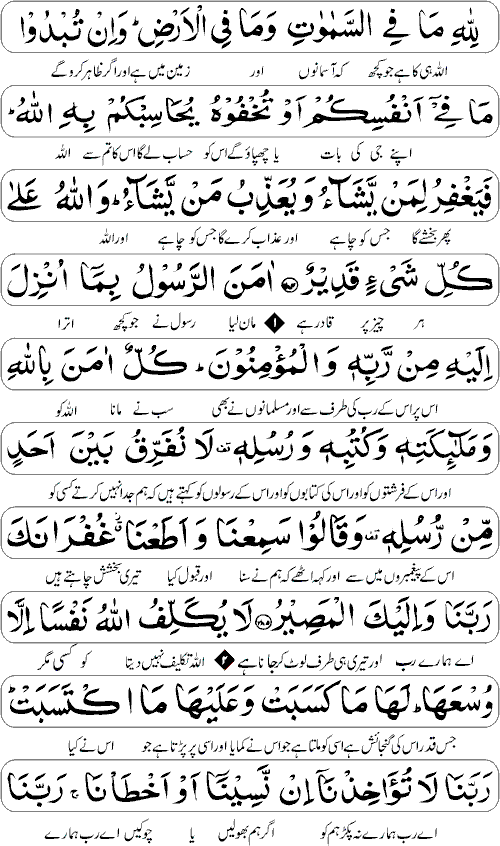 لِلّٰهِ مَا فِي السَّمٰوٰتِ وَمَا فِي الْاَرْضِ ؕ وَاِنْ تُبْدُوْا
اللہ ہی کا ہے جو کچھ کہ آسمانوں اور زمین میں ہے اور اگر ظاہر کرو گے
مَا فِيْۤ اَنْفُسِكُمْ اَوْ تُخْفُوْهُ يُحَاسِبْكُمْ بِهِ اللّٰهُ ؕ
اپنے جی کی بات یا چھپاؤ گے اس کو حساب لے گا اس کا تم سے اللہ
فَيَغْفِرُ لِمَنْ يَّشَآءُ وَيُعَذِّبُ مَنْ يَّشَآءُ ؕ وَاللّٰهُ عَلٰى
پھر بخشے گا جس کو چاہے اور عذاب کرے گا جس کو چاہے اور اللہ
كُلِّ شَيْءٍ قَدِيْرٌ ﴿۲۸۴﴾ اٰمَنَ الرَّسُوْلُ بِمَاۤ اُنْزِلَ
ہر چیز پر قادر ہے ۱ مان لیا رسول نے جو کچھ اترا
اِلَيْهِ مِنْ رَّبِّهٖ وَالْمُؤْمِنُوْنَ ؕ كُلٌّ اٰمَنَ بِاللّٰهِ
اس پر اس کے رب کی طرف سے اور مسلمانوں نے بھی سب نے مانا اللہ کو
وَمَلٰٓئِكَتِهٖ وَكُتُبِهٖ وَرُسُلِهٖ لَا نُفَرِّقُ بَيْنَ اَحَدٍ
اور اس کے فرشتوں کو اور اس کی کتابوں کو اور اس کے رسولوں کو کہتے ہیں کہ ہم جدا نہیں کرتے کسی کو
مِّنْ رُّسُلِهٖ وَقَالُوْا سَمِعْنَا وَاَطَعْنَا غُفْرَانَكَ
اس کے پیغمبروں میں سے اور کہہ اٹھے کہ ہم نے سنا اور قبول کیا تیری بخشش چاہتے ہیں
رَبَّنَا وَاِلَيْكَ الْمَصِيْرُ ﴿۲۸۵﴾ لَا يُكَلِّفُ اللّٰهُ نَفْسًا اِلَّا
اے ہمارے رب اور تیری ہی طرف لوٹ کر جانا ہے ۲ اللہ تکلیف نہیں دیتا کو کسی مگر
وُسْعَهَا ؕ لَهَا مَا كَسَبَتْ وَعَلَيْهَا مَا اكْتَسَبَتْ ؕ
جس قدر اس کی گنجائش ہے اسی کو ملتا ہے جو اس نے کمایا اور اسی پر پڑتا ہے جو اس نے کیا
رَبَّنَا لَا تُؤَاخِذْنَاۤ اِنْ نَّسِيْنَاۤ اَوْ اَخْطَاْنَا ۚ رَبَّنَا
اے رب ہمارے نہ پکڑ ہم کو اگر ہم بھولیں یا چوکیں اے رب ہمارے